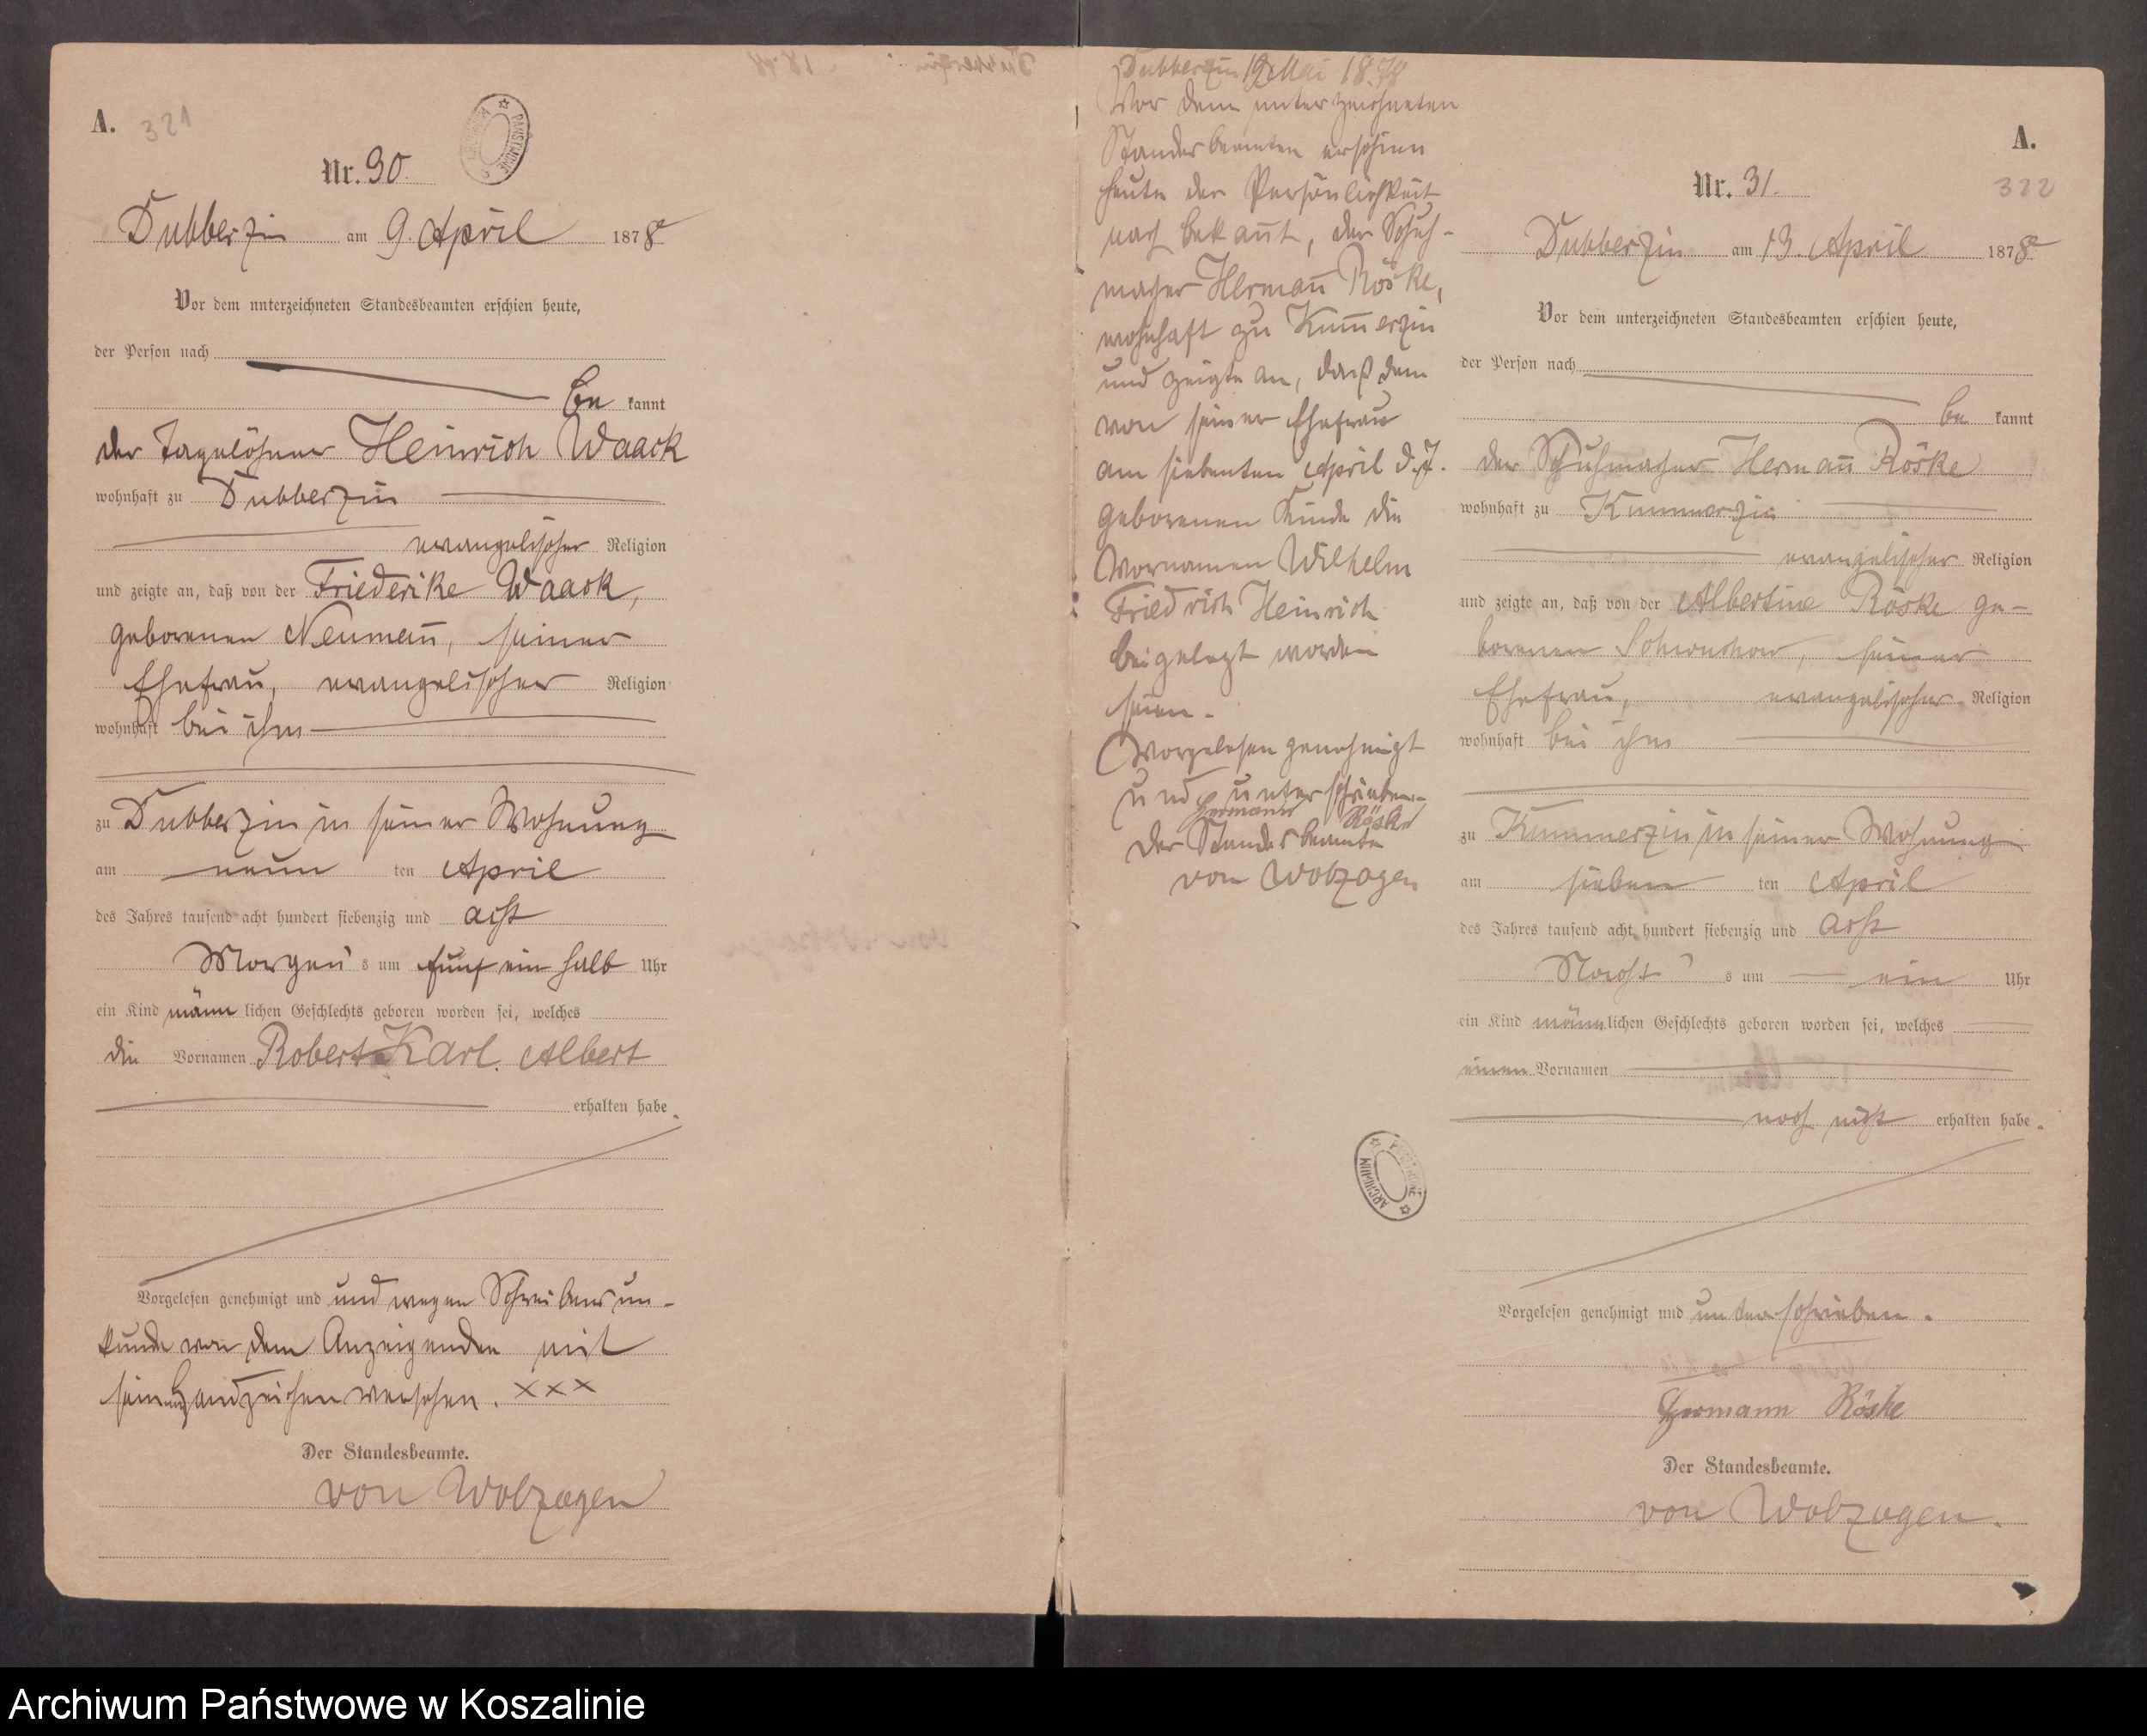 A. 321
Nr. 30.
Dubberzin am 9. April 1878
Vor dem unterzeichneten Standesbeamten erschien heute,
der Person nach
be kannt
der Tagelöhner Heinrich Waack
wohnhaft zu Dubberzin
evangelischer Religion
und zeigte an, daß von der Friederike Waack,
geborenen Neumañ, seiner
Ehefrau, evangelischer Religion
wohnhaft bei ihm
zu Dubberzin in seiner Wohnung
am neun ten April
des Jahres tausend acht hundert siebenzig und acht
Morgen's um fünf ein halb Uhr
ein Kind männlichen Geschlechts geboren worden sei, welches
die Vornamen Robert Karl Albert
erhalten habe.
Vorgelesen genehmigt und und wegen Schreibensun-
kunde von dem Anzeigenden mit
seinem Handzeichen versehen. xxx
Der Standesbeamte.
von Wobzogen
Dubberzin 12 Mai 1878
Vor dem unterzeichneten
Standesbeamten erschien
heute der Persönlichkeit
nach bekañt, der Schuh-
macher Hermañ Röske,
wohnhaft zu Kum̄erzin
und zeigte an, daß dem
von seiner Ehefrau
am siebenten April d. J.
geborenen Kinde die
Vornamen Wilhelm
Friedrich Heinrich
beigelegt worden
seien.
Vorgelesen genehmigt
und unterschrieben.
Hermann Röske
Der Standesbeamte
von Wobzogen
A.
322
Nr. 31.
Dubberzin am 13. April 1878
Vor dem unterzeichneten Standesbeamten erschien heute,
der Person nach
be kannt
der Schuhmacher Hermañ Röske
wohnhaft zu Kummerzin
evangelischer Religion
und zeigte an, daß von der Albertine Röske ge-
borenen, seiner
Ehefrau, evangelischer Religion
wohnhaft bei ihm
zu Kummerzin in seiner Wohnung
am sieben ten April
des Jahres tausend acht hundert siebenzig und acht
Nacht's um ein Uhr
ein Kind männlichen Geschlechts geboren worden sei, welches
einen Vornamen
noch nicht erhalten habe.
Vorgelesen genehmigt und unterschrieben.
Hermann Röske
Der Standesbeamte.
von Wobzogen.
ARCHIWUM PAŃSTWOWE
Archiwum Państwowe w Koszalinie